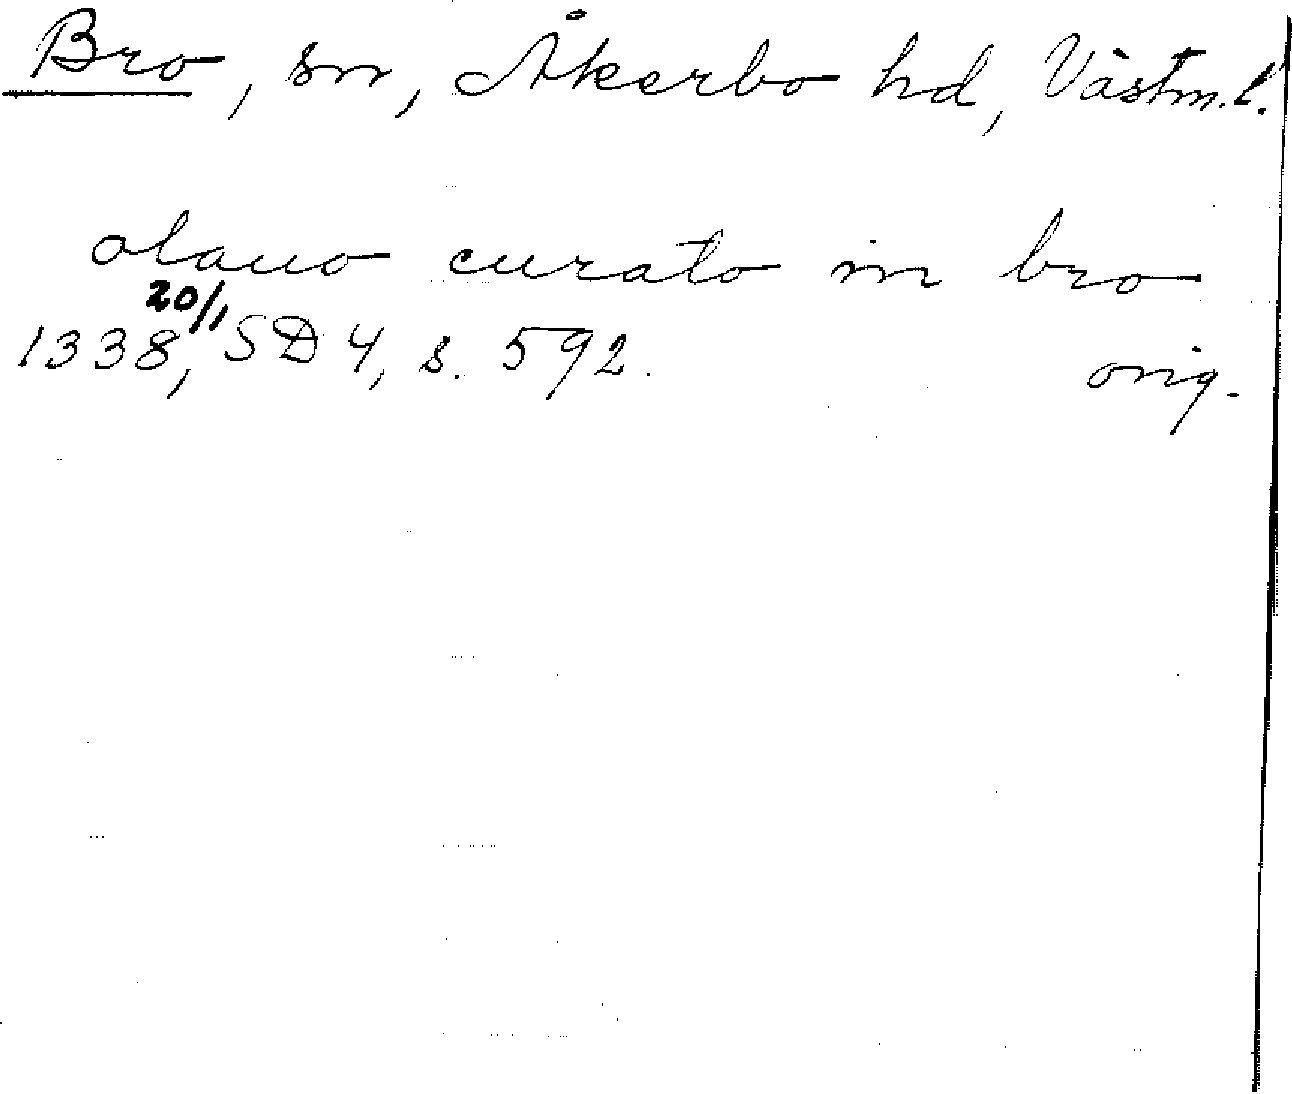 Bro, sn, Åkerbo hd, Västm. l.
olauo curato in bro
20/1
1338, SD 4, s. 592. orig.